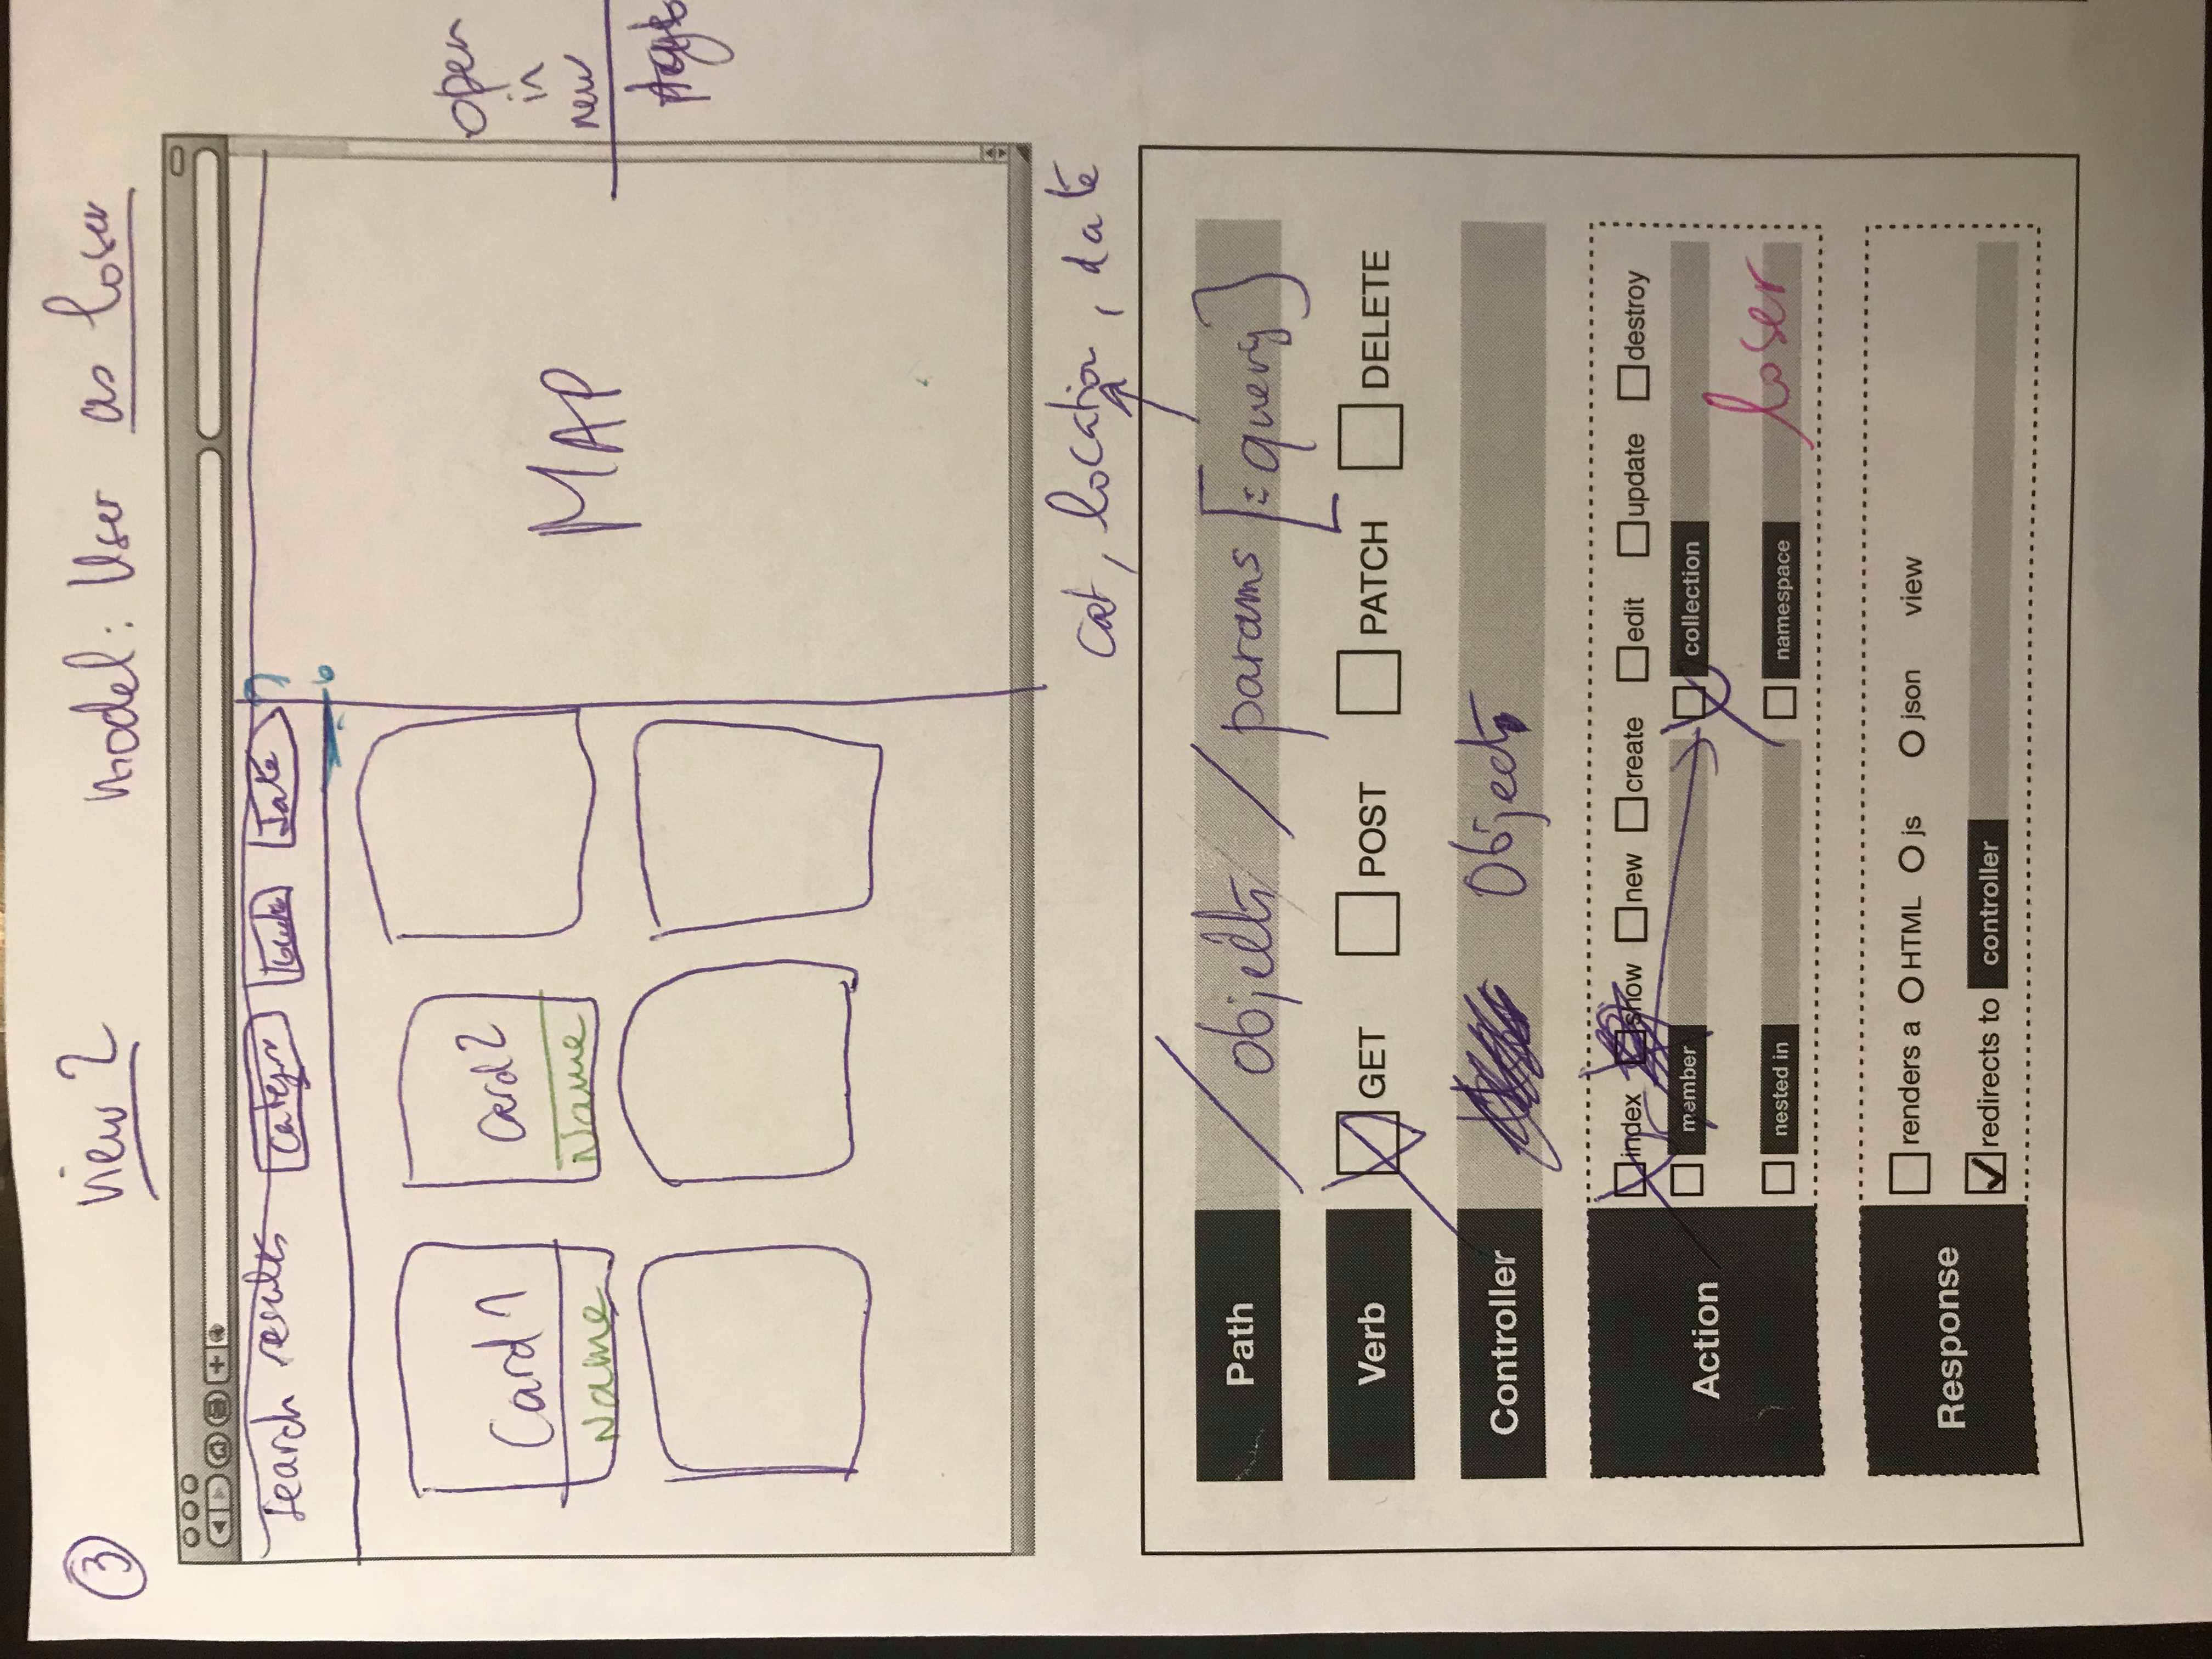 3
view 2 model: User as loser
Search results Category Date
Card 1 Card 2
Name Name
MAP
open
in
new
cat, location, date
Path / objects / params [:query]
Verb GET POST PATCH DELETE
Controller Objects
Action
index show new create edit update destroy
member collection
nested in namespace loser
Response
renders a HTML js json view
redirects to controller